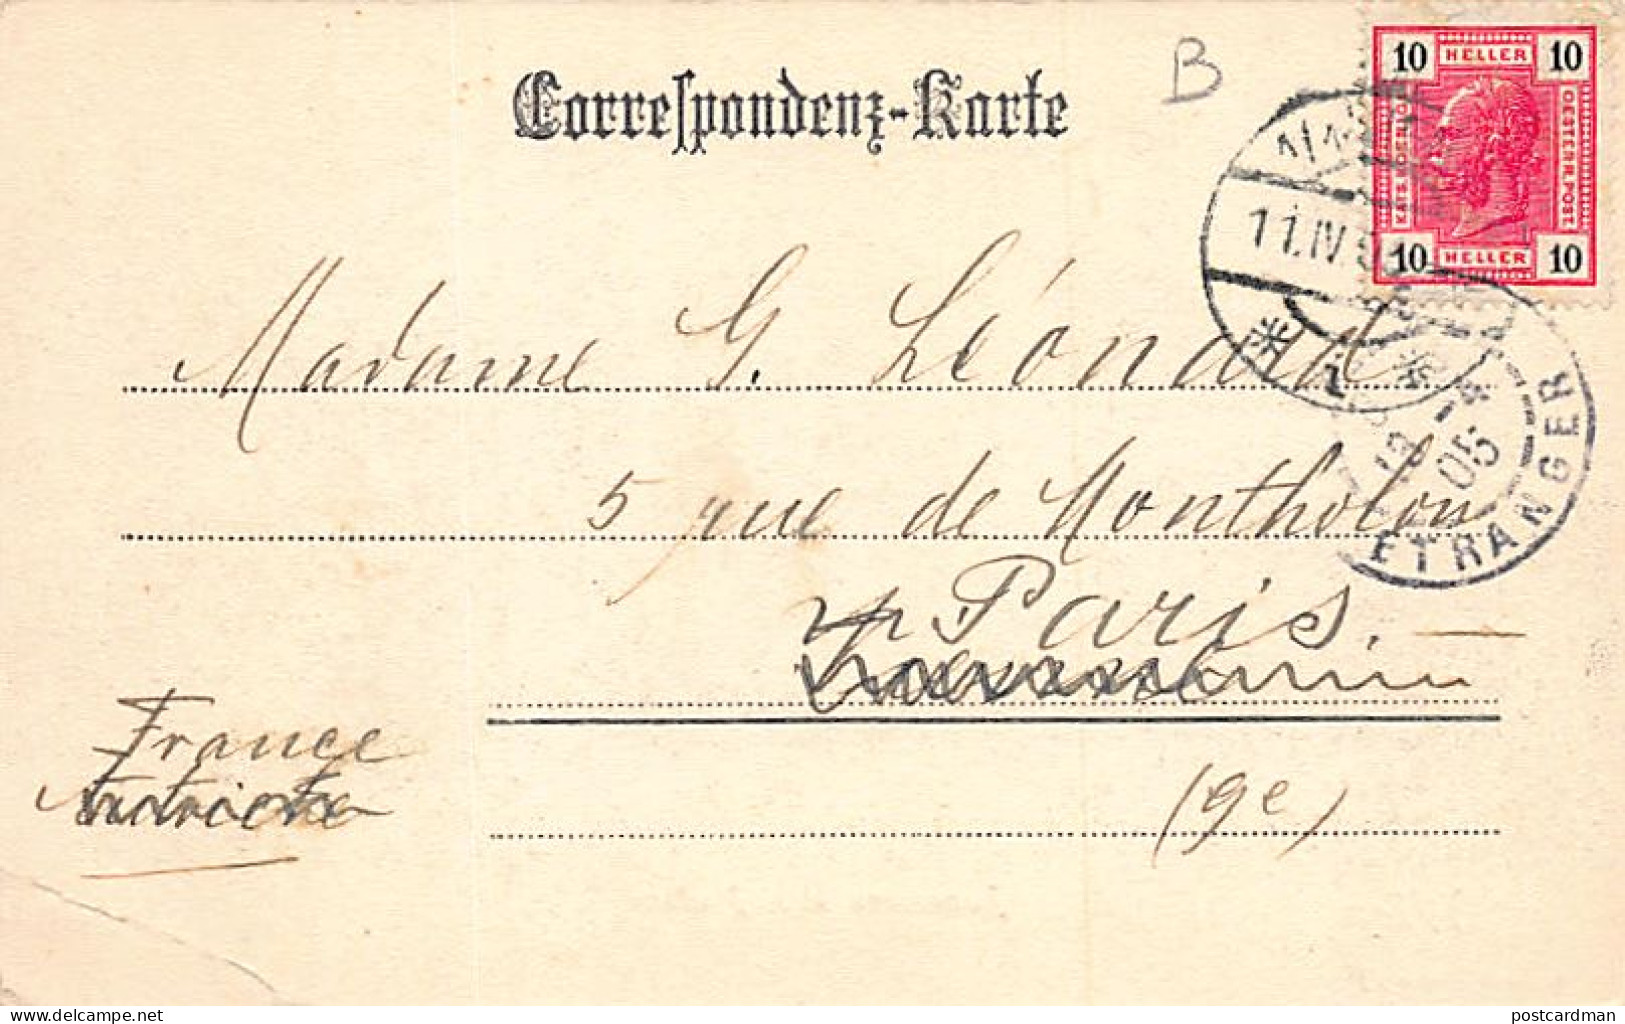 Correspondenz-Karte
B
10 HELLER 10
KAIS. KÖN.
OESTERR. POST
10 HELLER 10
11.IV.
Madame G. Léonard
5 rue de Montholon
Paris.
France
Autriche
(9e)
12 - 4
05
ETRANGER
delcampe.net
postcardman